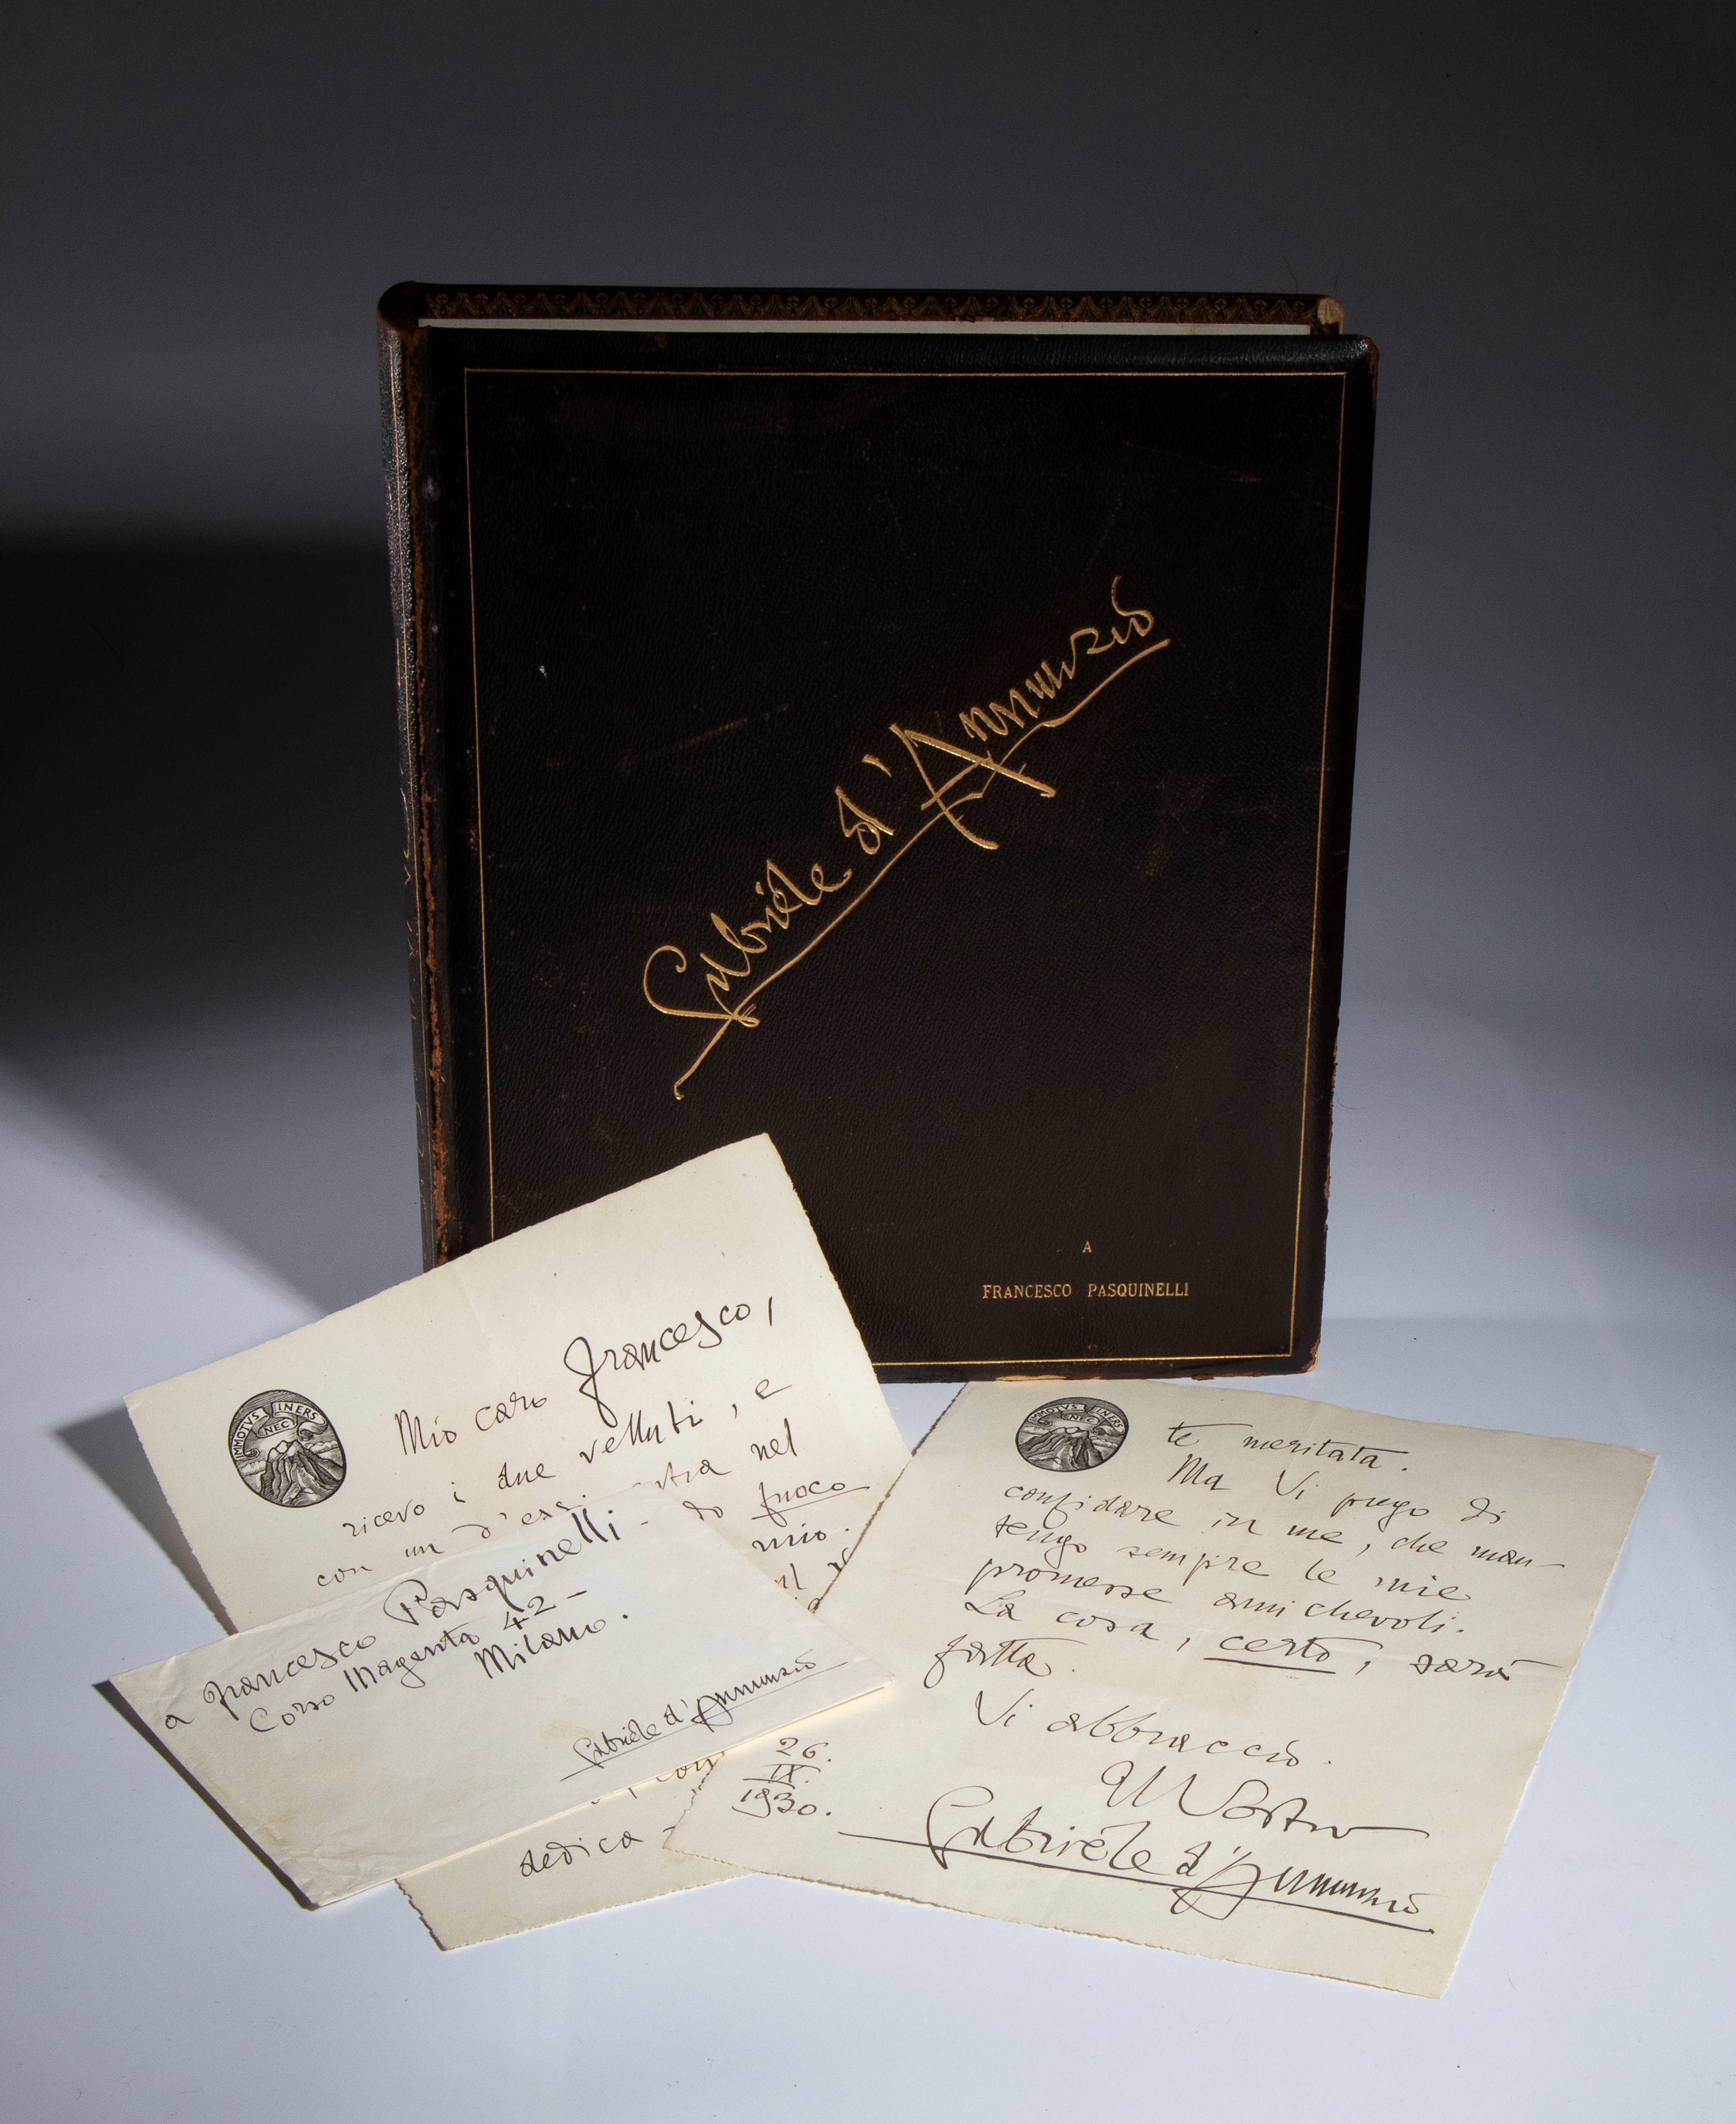 Gabriele d'Annunzio
A
FRANCESCO PASQUINELLI
IMMOTVS NEC INERS
Mio caro Francesco,
ricevo i due velluti, e
con un d'es nel
do fuoco
mio.
a Francesco Pasquinelli -
Corso Magenta 42 -
Milano.
Gabriele d'Annunzio
dedica -
IMMOTVS NEC INERS
te meritata.
Ma Vi prego di
confidare in me, che man-
tengo sempre le mie
promesse amichevoli.
La cosa, certo, sarà
fatta.
Vi abbraccio.
Il Vostro
26.
IX.
1930.
Gabriele d'Annunzio